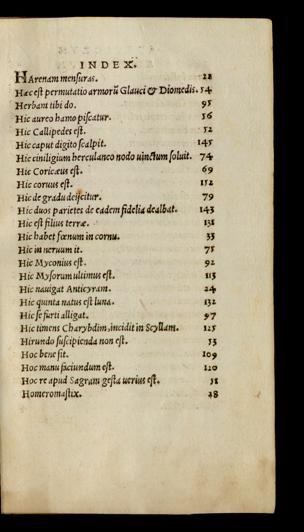 INDEX.
HArenam mensuras. 22
Hæc est permutatio armorū Glauci & Diomedis. 54
Herbam tibi do. 95
Hic aureo hamo piscatur. 56
Hic Callipedes est. 52
Hic caput digito scalpit. 145
Hic ciniligium herculanco nodo uinctum soluit. 74
Hic Coricæus est. 69
Hic coruus est. 152
Hic de gradu deijcitur. 79
Hic duos parietes de eadem fidelia dealbat. 143
Hic est filius terræ. 131
Hic habet fœnum in cornu. 33
Hic in neruum it. 75
Hic Myconius est. 92
Hic Mysorum ultimus est. 113
Hic nauigat Anticyram. 24
Hic quinta natus est luna. 132
Hic se furti alligat. 97
Hic timens Charybdim, incidit in Scyllam. 125
Hirundo suscipienda non est. 53
Hoc bene sit. 109
Hoc manu faciundum est. 120
Hoc re apud Sagram gesta uerius est. 31
Homeromastix. 28